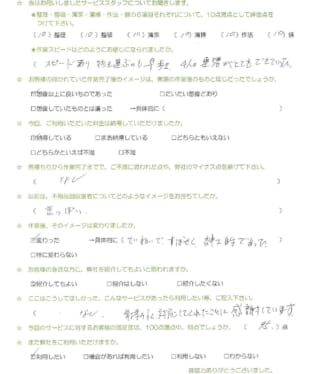 ☆ 今回お伺いしましたサービススタッフについてお聞きします。
★整理・整頓・清潔・清掃・作法・躾の6項目それぞれについて、10点満点として評価点を
つけて下さい。
(10)整理 (10)整頓 (10)清潔 (10)清掃 (10)作法 (10)躾
★作業スピードなどどのようにお感じになられましたか。
☆ お客様の描かれていた作業完了後のイメージは、実際の作業後のものと同じだったでしょうか。
☑想像以上に良いものであった □だいたい想像どおり
□想像していたものとは違った →具体的に( )
☆ 今回、ご利用いただいた料金は納得していただけましたか。
☑納得している □まあ納得している □どちらともいえない
□どちらかといえば不満 □不満
☆ 見積もりから作業完了までで、ご不満に思われた点や、弊社のマイナス点を挙げて下さい。
( なし )
☆ 以前は、不用品回収業者についてどのようなイメージをお持ちでしたか。
☆ 作業後、そのイメージは変わりましたか。
☑変わった →具体的に( ていねいで、すばやく、紳士的であった )
□特に変わらない
☆ お客様の身近な方に、弊社を紹介してもよいと思われますか。
☑紹介してもよい □紹介はしない □紹介したくない
☆ ここはこうしてほしかった、こんなサービスがあったら利用したい等、ご記入下さい。
( なし、 対応してくれたことに感謝しています
☆ 今回のサービスに対するお客様の満足度は、100点満点中、何点でしょうか。 ( )点
☆ また弊社をご利用いただけますか。
☑利用したい □機会があれば利用したい □利用しない □わからない
ご協力ありがとうございました。